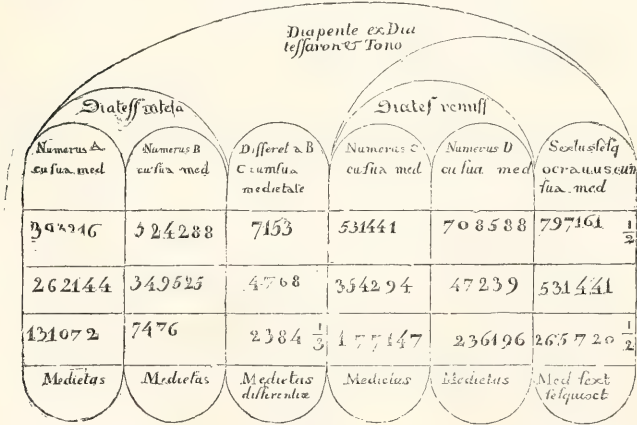 Diapente ex Dia
tessaron & Tono
Diatess intesa
Diates remiss
Numerus A
cu sua med
Numerus B
cu sua med
Differet a B
C cum sua
medietate
Numerus C
cu sua med
Numerus D
cu sua med
Sextus sesq
octauus cum
sua med
524288
7153
531441
708588
797161 1/2
262144
349525
4768
354294
47239
531441
131072
7476
2384 1/3
177147
236196
265720 1/2
Medietas
Medietas
Medietas
differentiæ
Medietas
Medietas
Med sext
sesquioct